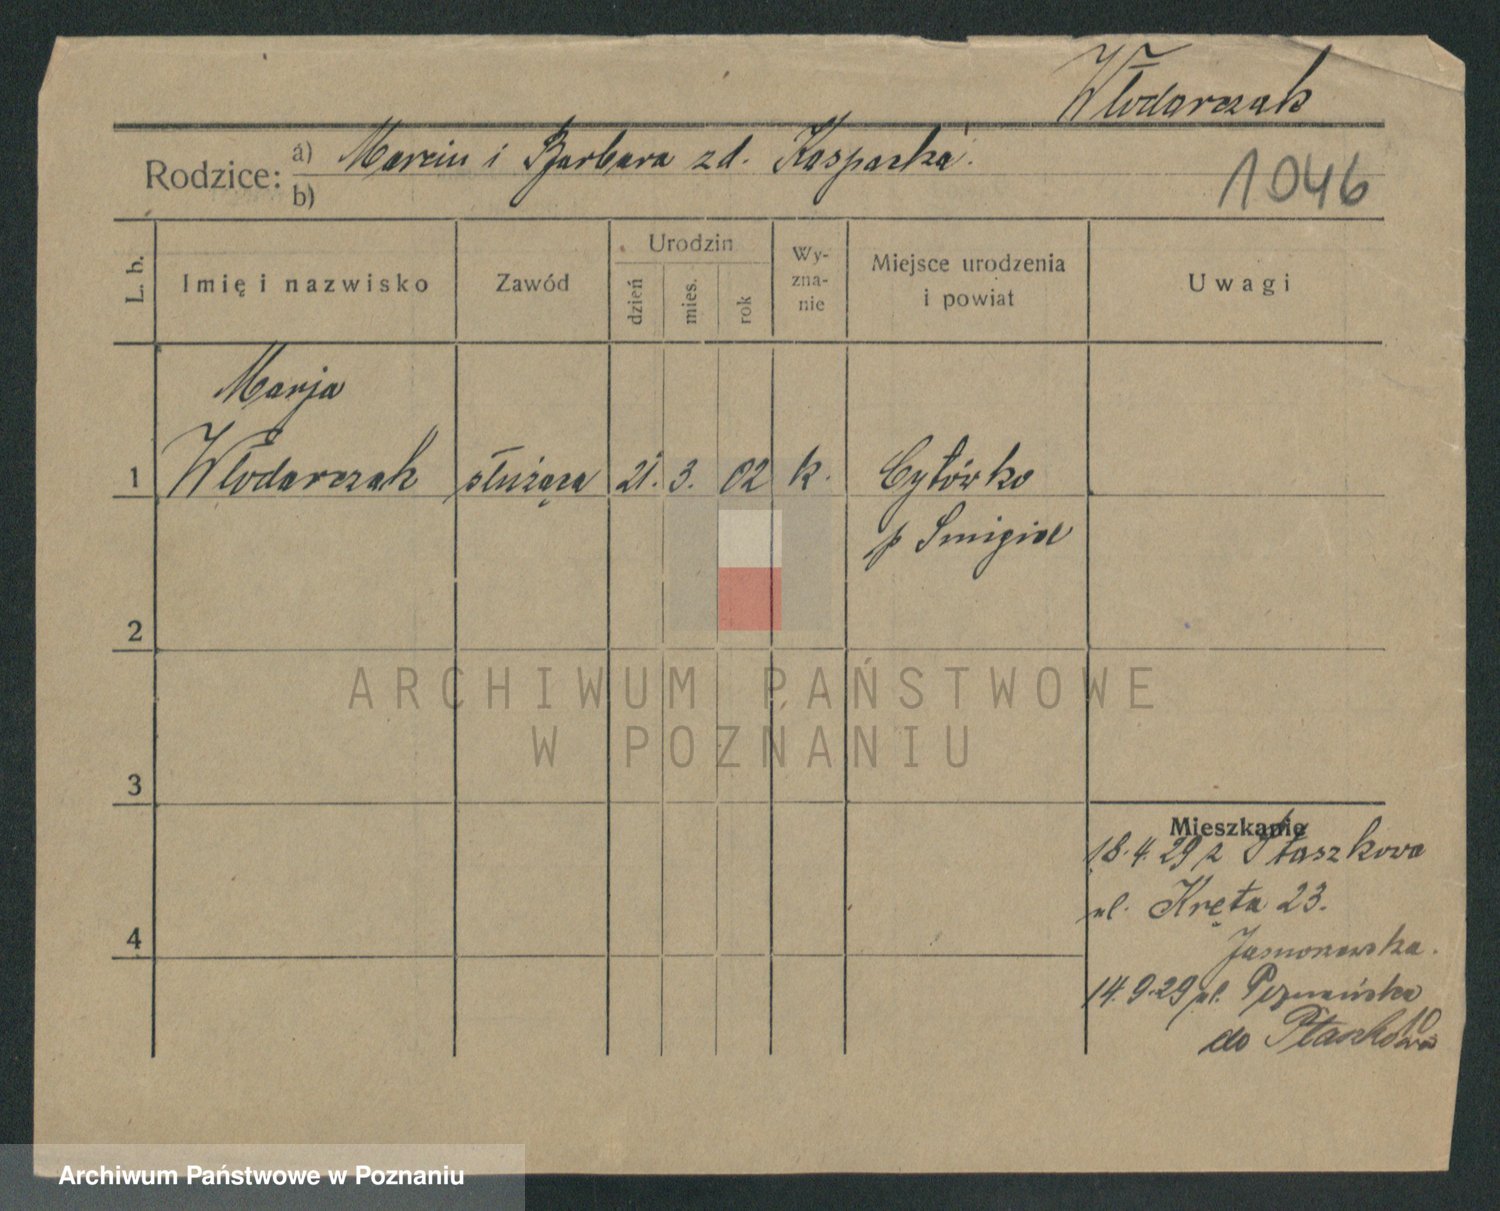 Włodarczak
Rodzice: a) Marcin i Barbara zd. Kasparka
b)
1046
L. b.
Imię i nazwisko
Zawód
Urodzin
dzień
mies.
rok
Wy-
zna-
nie
Miejsce urodzenia
i powiat
Uwagi
Marja
1 Włodarczak służąca 21. 3. 02 k. Cytówko
p Smigiel
2
3
4
Mieszkanie
18.4.29 z Ptaszkowa
ul. Kręta 23.
14.9.29 ul. Poznańska
10
do Ptaszkowa
ARCHIWUM PAŃSTWOWE
W POZNANIU
Archiwum Państwowe w Poznaniu